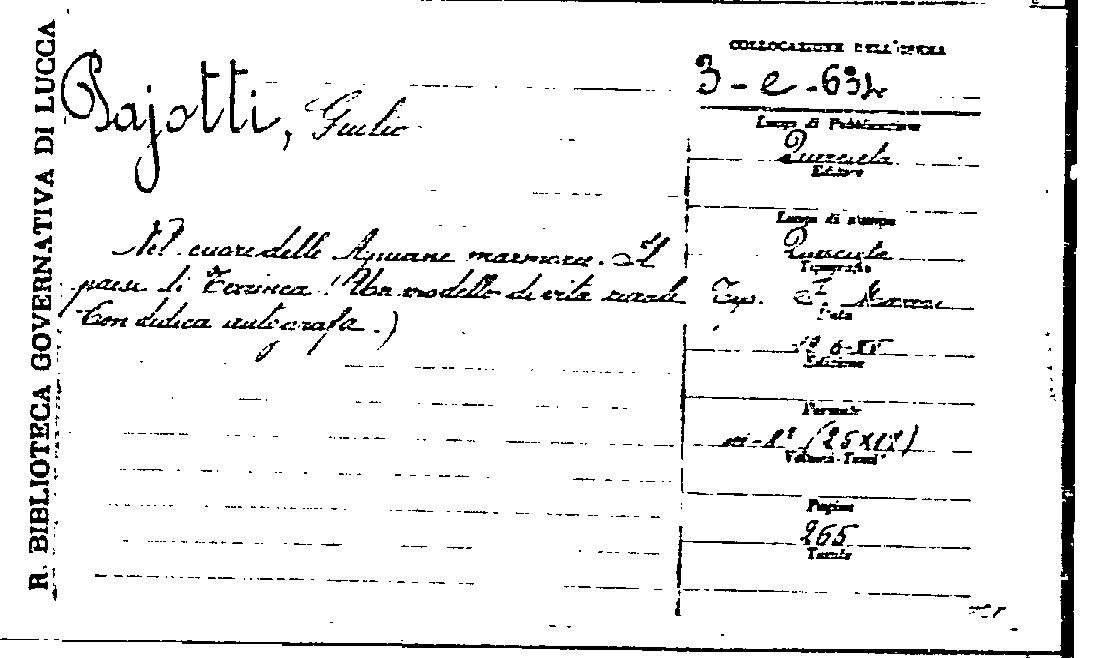 R. BIBLIOTECA GOVERNATIVA DI LUCCA
Pajotti, Giulio
Nel cuore delle Apuane marmoree. Il
paese di Terrinca. (Un modello di vita rurale
Con dedica autografa.)
COLLOCAZIONE DELL'OPERA
3-e-634
Luogo di Pubblicazione
Querceta
Editore
Luogo di stampa
Querceta
Tipografia
Tip. F.
Data
Edizione
Formato
in-8° (25x18)
Volumi-Tomi
Pagine
265
Tavole